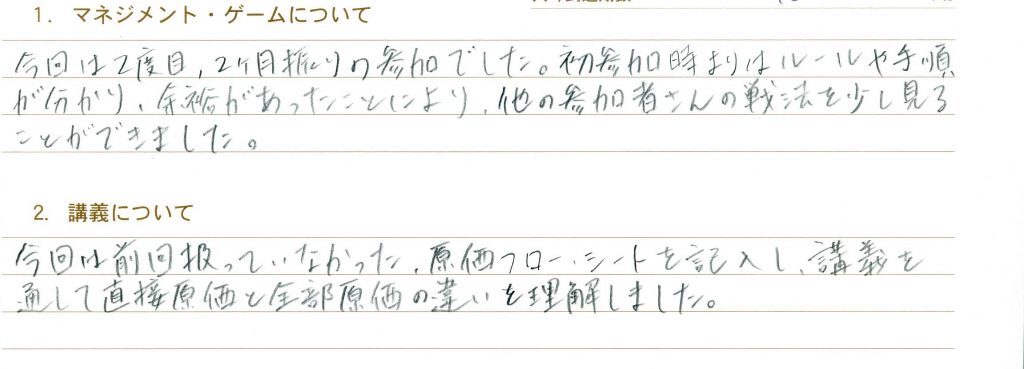 1. マネジメント・ゲームについて
今回は2度目、2ヶ月振りの参加でした。初参加時よりはルールや手順
が分かり、余裕があったことにより、他の参加者さんの戦法を少し見る
ことができました。
2. 講義について
今回は前回扱っていなかった、原価フロー・シートを記入し、講義を
通して直接原価と全部原価の違いを理解しました。